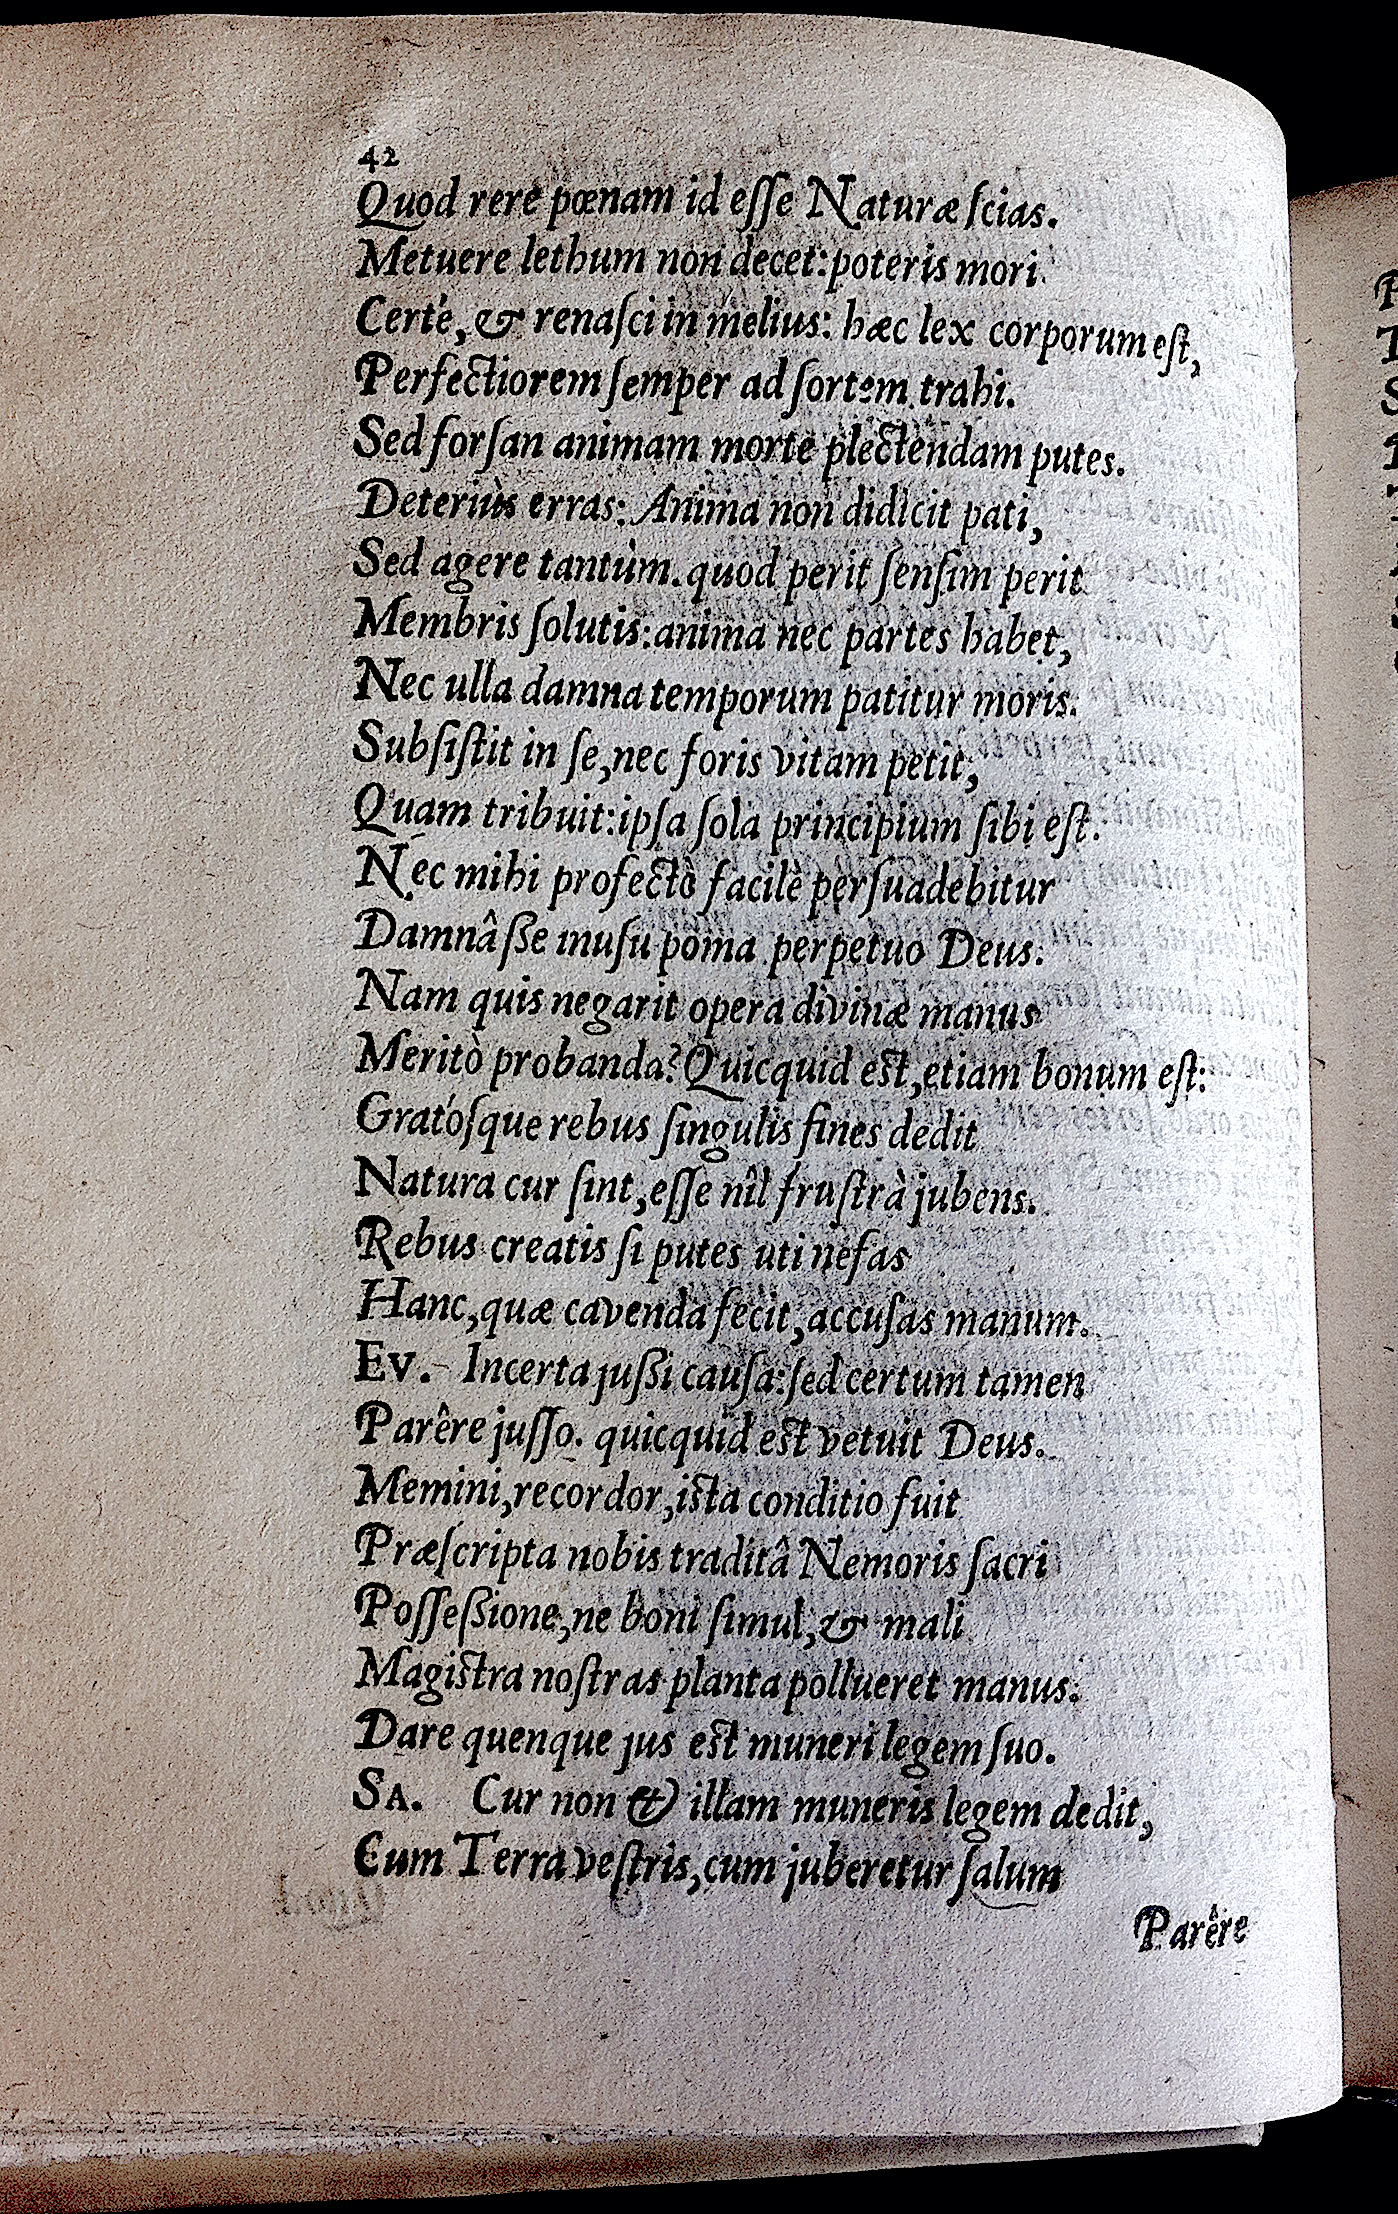 42
Quod rere pœnam id eſſe Naturæ ſcias.
Metuere lethum non decet: poteris mori
Certé, & renaſci in melius: hæc lex corporum eſt,
Perfectiorem ſemper ad ſortem trahi.
Sed forſan animam morte plectendam putes.
Deteriùs erras: Anima non didicit pati,
Sed agere tantùm. quod perit ſenſim perit
Membris ſolutis: anima nec partes habet,
Nec ulla damna temporum patitur moris.
Subſiſtit in ſe, nec foris vitam petit,
Quam tribuit: ipſa ſola principium ſibi eſt.
Nec mihi profectò facilè perſuadebitur
Damnâſſe inuſu poma perpetuo Deus:
Nam quis negarit opera divinæ manus
Meritò probanda? Quicquid eſt, etiam bonum eſt:
Gratóſque rebus ſingulis fines dedit
Natura cur ſint, eſſe nîl fruſtrà jubens.
Rebus creatis ſi putes uti nefas
Hanc, quæ cavenda fecit, accuſas manum.
Ev. Incerta juſſi cauſa: ſed certum tamen
Parêre juſſo. quicquid eſt vetuit Deus.
Memini, recordor, iſta conditio fuit
Præſcripta nobis traditâ Nemoris ſacri
Poſſeſſione, ne boni ſimul, & mali
Magiſtra noſtras planta pollueret manus:
Dare quenque jus eſt muneri legem ſuo.
SA. Cur non & illam muneris legem dedit,
Cum Terra veſtris, cum juberetur ſalum
Parêre